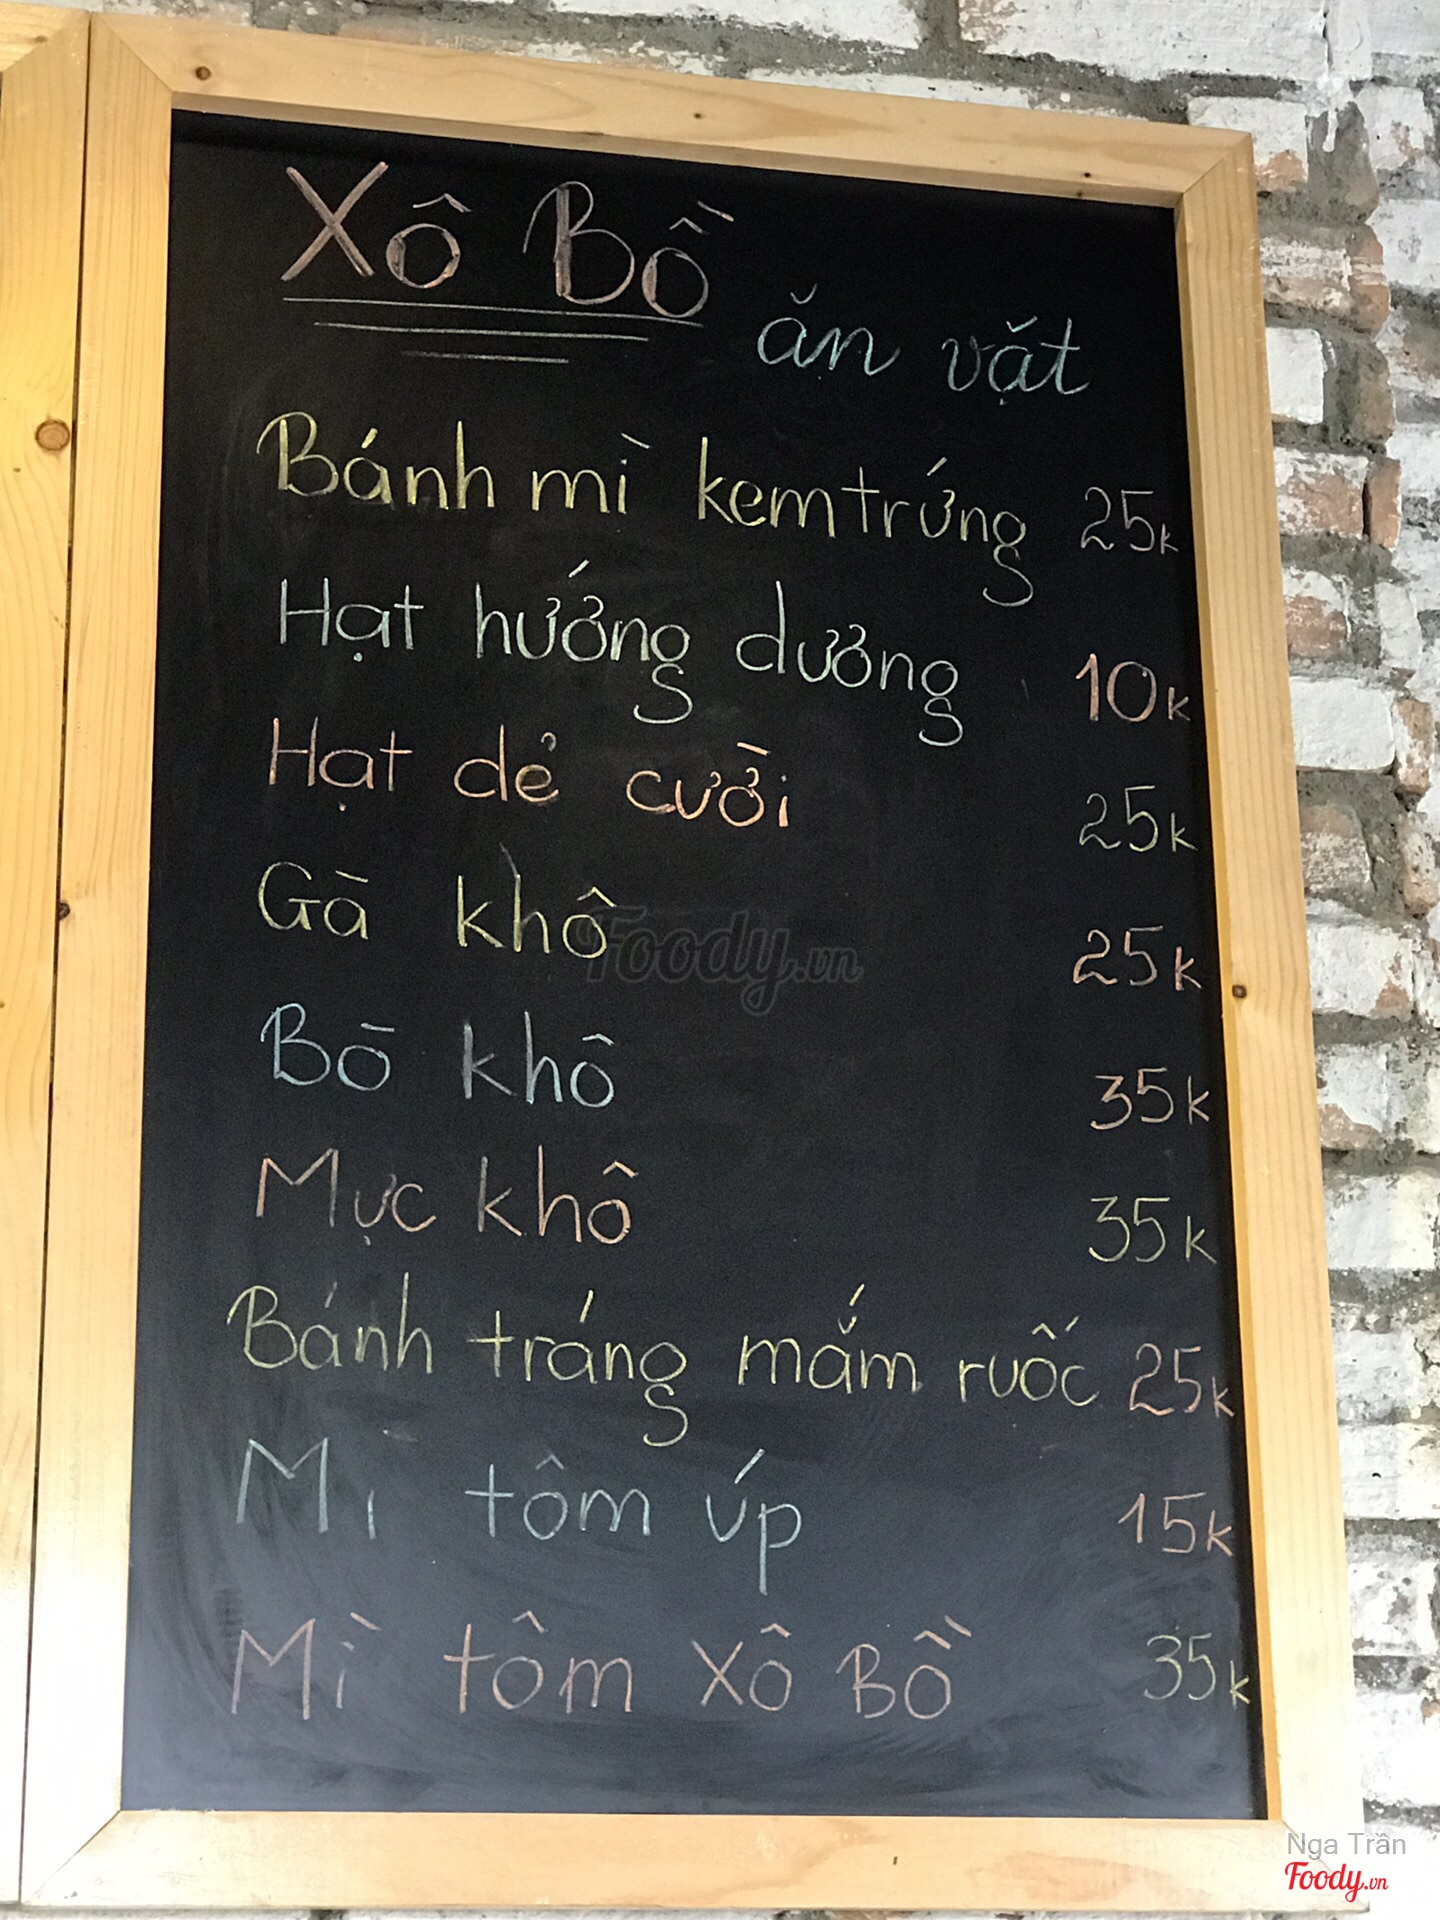 Xô Bồ
ăn vặt
Bánh mì kem trứng 25k
Hạt hướng dương 10k
Hạt dẻ cười 25k
Gà khô 25k
Bò khô 35k
Mực khô 35k
Bánh tráng mắm ruốc 25k
Mì tôm úp 15k
Mì tôm xô Bồ 35k
Foody.vn
Nga Trần
Foody.vn